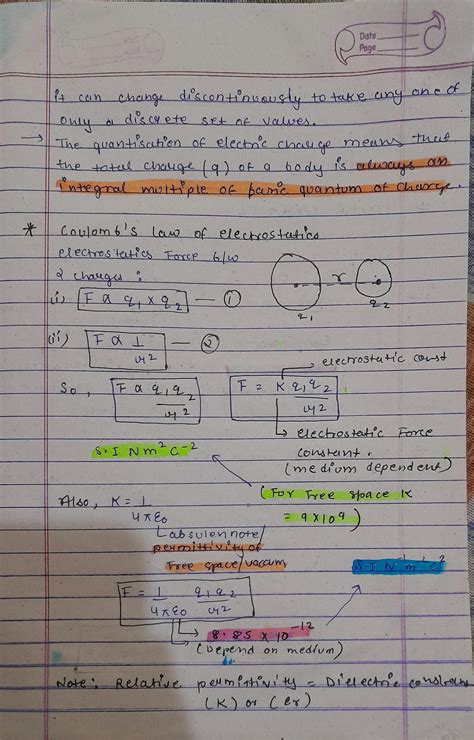 Date
Page
it can change discontinuously to take any one of
only a discrete set of values.
→ The quantisation of electric charge means that
the total charge (q) of a body is always an
integral multiple of basic quantum of charge.
* Coulomb's law of electrostatics
electrostatics Force b/w
2 charges :
r
q1 q2
(i) F α q1 × q2 — ①
(ii) F α 1/r2 — ②
electrostatic const
So, F α q1q2/r2 F = K q1q2/r2
→ electrostatic Force
constant.
(medium dependent)
S.I Nm2 C-2
(For Free space K
= 9×109)
Also, K = 1/4πε0
permittivity of
Free space/vaccum
S.I N-1m-2C2
F = 1/4πε0 q1q2/r2
→ 8.85 × 10-12
(Depend on medium)
Note: Relative permittivity = Dielectric constant
(K) or (εr)